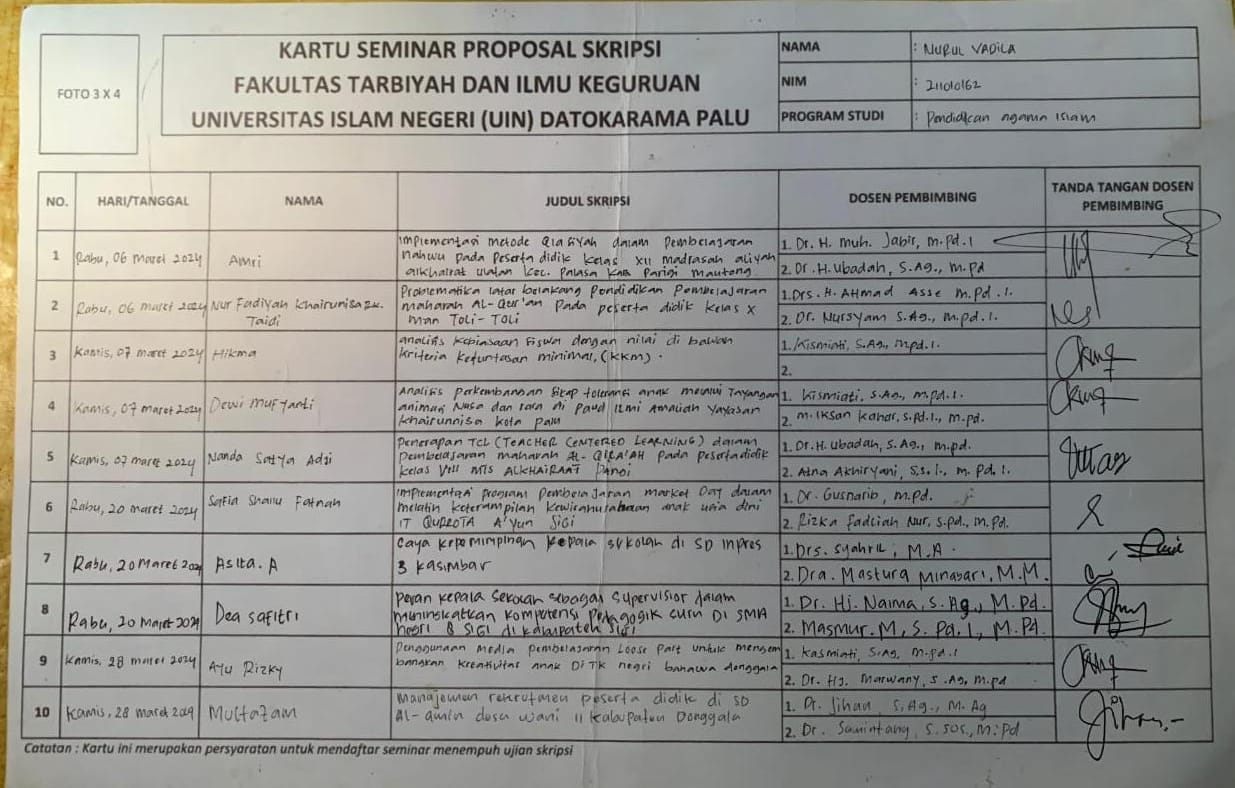 FOTO 3 X 4
KARTU SEMINAR PROPOSAL SKRIPSI
FAKULTAS TARBIYAH DAN ILMU KEGURUAN
UNIVERSITAS ISLAM NEGERI (UIN) DATOKARAMA PALU
NAMA : NURUL VADILA
NIM : 211010162
PROGRAM STUDI : Pendidikan agama Islam
NO. HARI/TANGGAL NAMA JUDUL SKRIPSI DOSEN PEMBIMBING TANDA TANGAN DOSEN
PEMBIMBING
1 Rabu, 06 maret 2024 Amri
Implementasi metode Qiafiyah dalam Pembelajaran
nahwu pada Peserta didik kelas XII madrasah aliyah
alkhairat ulatan kec. palasa kab Parigi moutong
1. Dr. H. Muh. Jabir, M.Pd.I
2. Dr. H. Ubadah, S.Ag., M.Pd
2 Rabu, 06 maret 2024 Nur Fadiyah Khairunisa
Taidi
Problematika latar belakang pendidikan Pembelajaran
maharah Al-Qur'an Pada peserta didik kelas X
man Toli-Toli
1. Drs. H. AHmad Asse M.Pd.I.
2. Dr. Nursyam S.Ag., M.pd.I.
3 Kamis, 07 maret 2024 Hikma
analisis kebiasaan siswa dengan nilai di bawah
kriteria ketuntasan minimal, (KKM).
1. Kismiati, S.Ag., M.pd.I.
2.
4 Kamis, 07 maret 2024 Dewi Mufyanti
Analisis perkembangan sikap toleransi anak melalui Tayangan
animasi Nusa dan rara di Paud Ilmi Amaliah Yayasan
khairunnisa kota palu
1. Kismiati, S.Ag., M.pd.I.
2. M. Iksan kahar, S.Pd.I., M.pd.
5 Kamis, 07 maret 2024 Nanda Satya Adzi
penerapan TCL (TEACHER CENTERED LEARNING) dalam
Pembelajaran maharah AL-QIRA'AH pada peserta didik
kelas VIII MTS ALKHAIRAAT
1. Dr. H. Ubadah, S.Ag., M.pd.
2. Atna Akhiryani, S.S.I., M.Pd.I.
6 Rabu, 20 maret 2024 Safia Shanu Fatnah
Implementasi program Pembelajaran Market Day dalam
melatih keterampilan kewirausahaan anak usia dini
IT QURROTA A'Yun SIGI
1. Dr. Gusnarib, M.Pd.
2. Rizka Fadliah Nur, S.pd., M.Pd.
7 Rabu, 20 Maret 2024 Aslta. A
Gaya kepemimpinan kepala sekolah di SD Inpres
3 kasimbar
1. Drs. Syahril, M.A.
2. Dra. Mastura Minabari, M.M.
8 Rabu, 20 Maret 2024 Dea safitri
peran kepala sekolah sebagai Supervisior dalam
meningkatkan Kompetensi Pedagogik guru DI SMA
negri 8 SIGI di kabupaten Sigi
1. Dr. Hj. Naima, S.Ag., M.Pd.
2. Masmur.M, S.Pd.I., M.Pd.
9 Kamis, 28 maret 2024 Ayu Rizky
Penggunaan Media pembelajaran Loose Part untuk mengem
bangkan kreativitas anak Di TK negri banawa donggala
1. Kasmiati, S.Ag, M.pd.I
2. Dr. Hj. Marwany, S.Ag, M.pd
10 Kamis, 28 maret 2029 Multazam
Manajemen rekrutmen peserta didik di SD
Al-amin desa wani II Kabupaten Donggala
1. Dr. Jihan, S.Ag., M.Ag
2. Dr. Samintang, S.SOS., M.Pd
Catatan : Kartu ini merupakan persyaratan untuk mendaftar seminar menempuh ujian skripsi